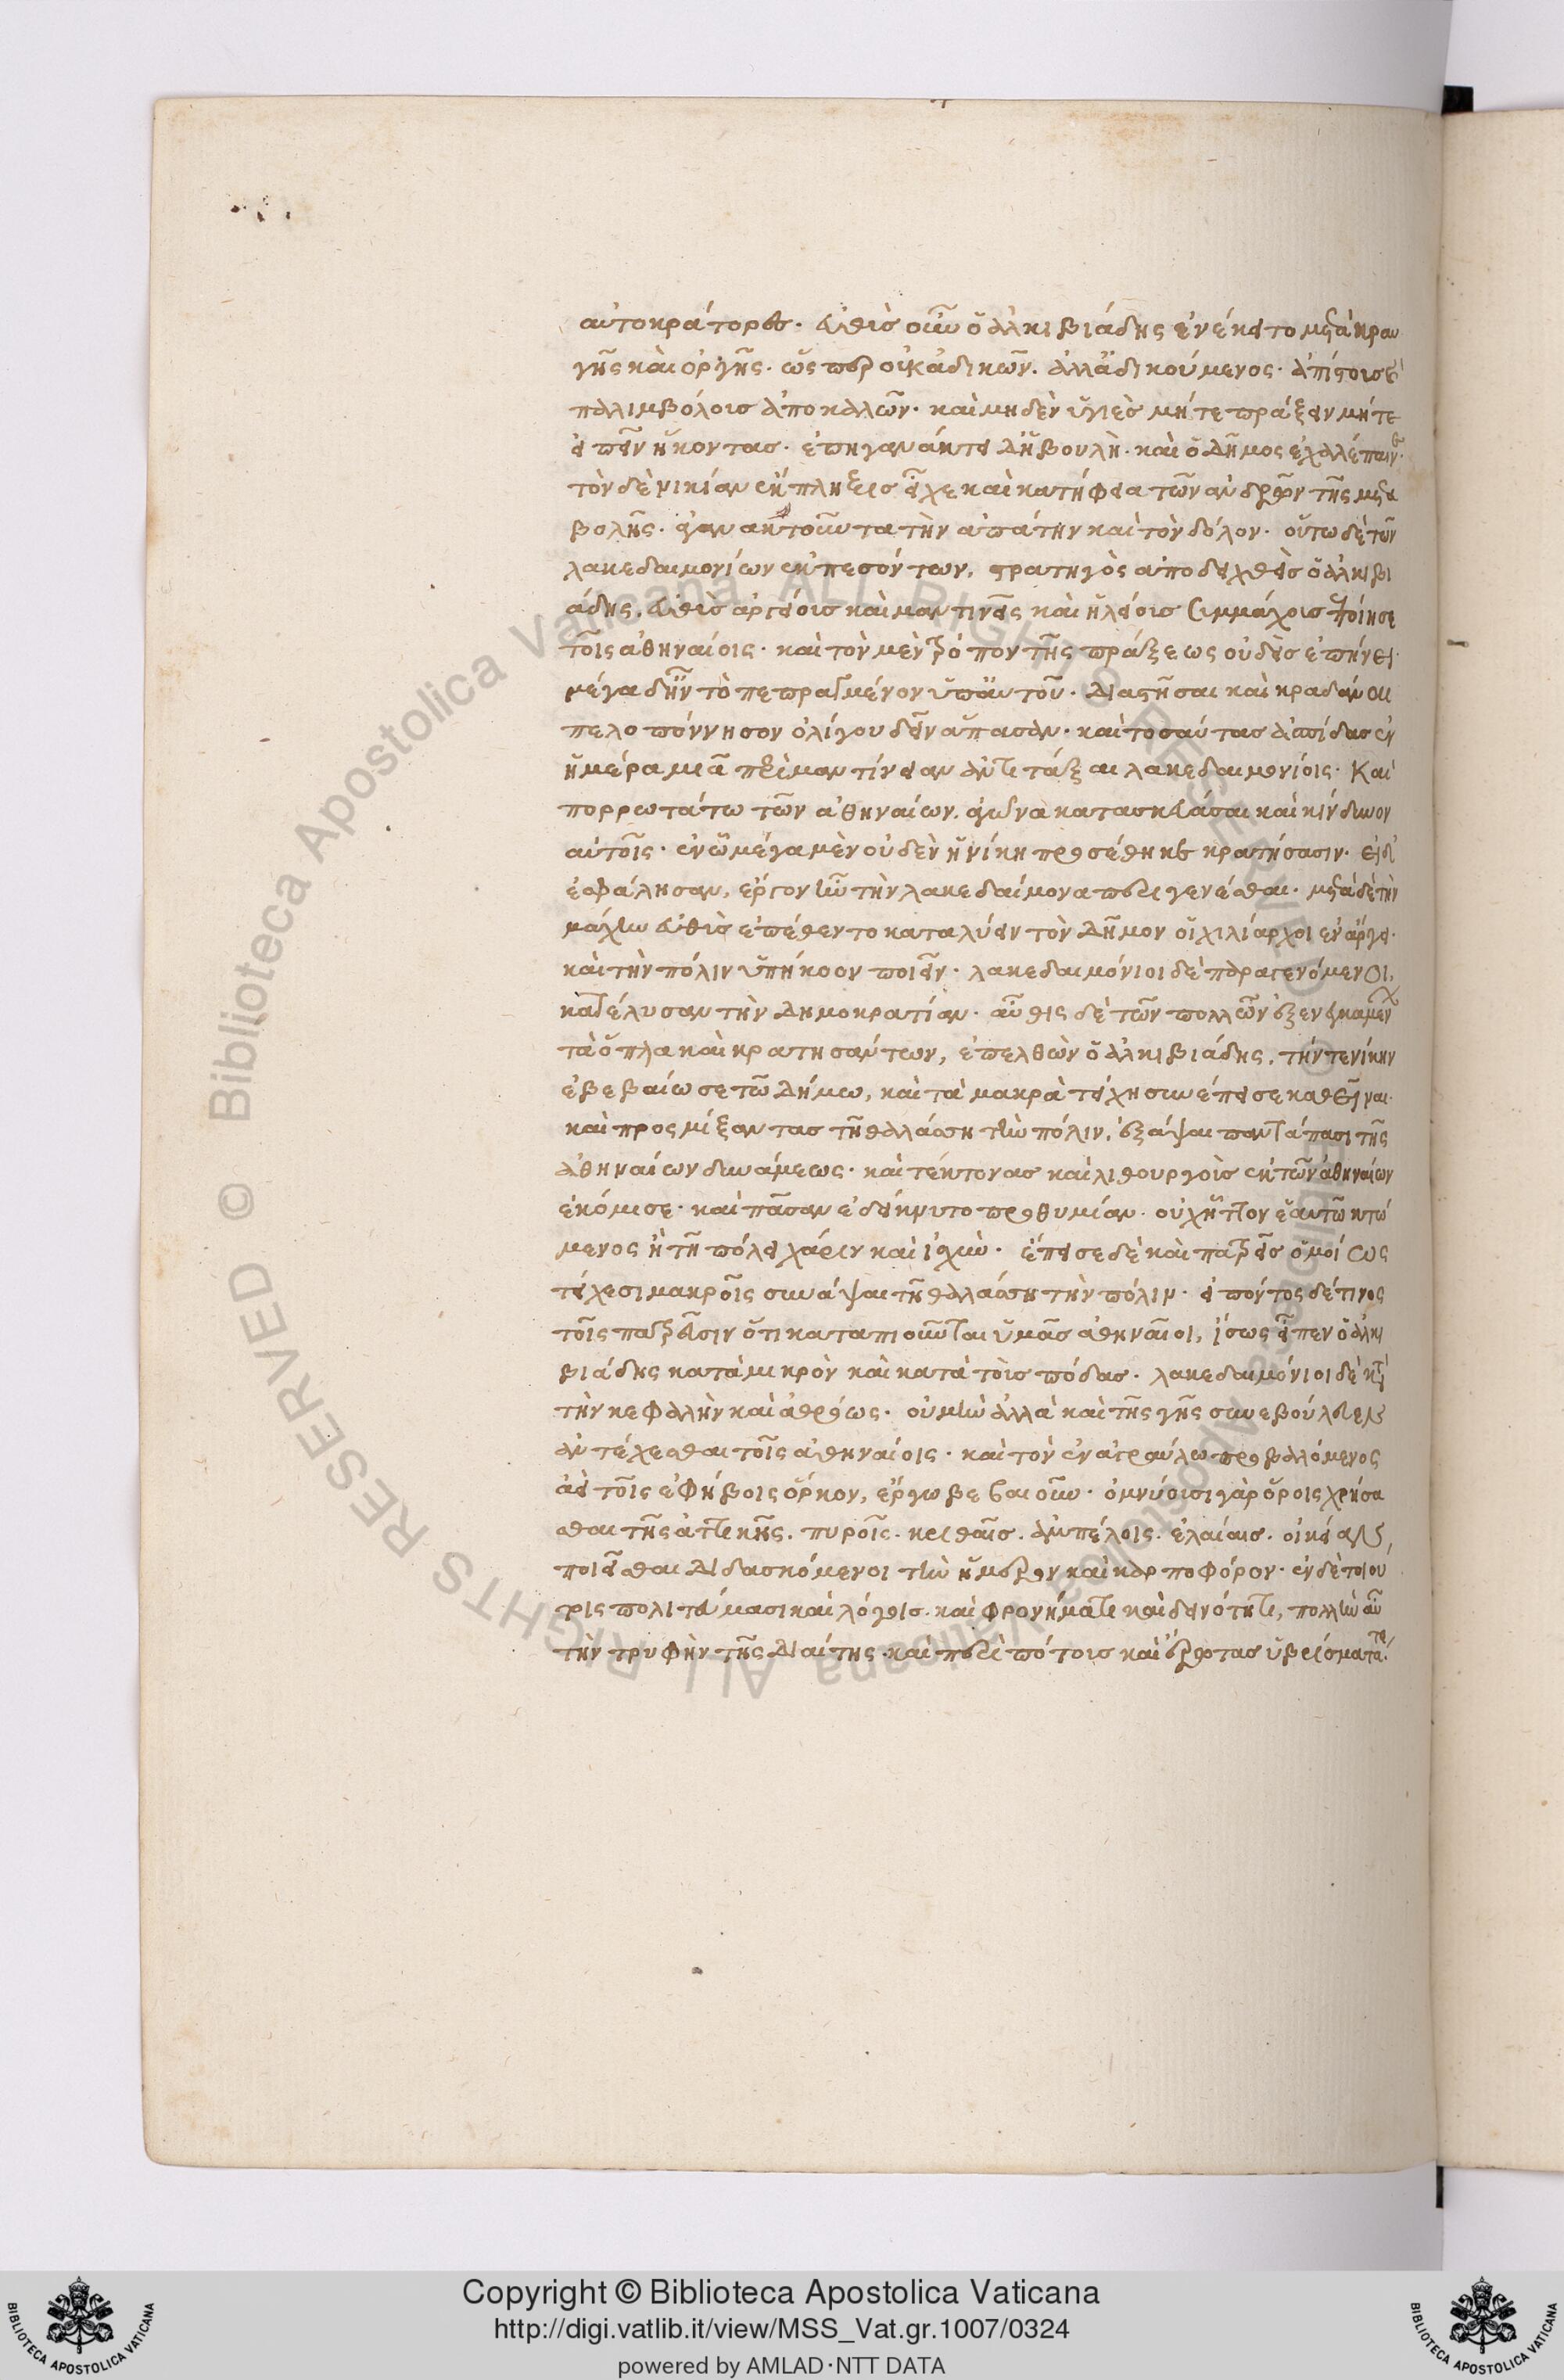 αὐτοκράτορες. εὐθὺς οὖν ὁ ἀλκιβιάδης ἐνέκειτο μετὰ κραυ
γῆς καὶ ὀργῆς. ὥσπερ οὐκ ἀδικῶν. ἀλλ' ἀδικούμενος. ἀπίστους καὶ
παλιμβόλους ἀποκαλῶν. καὶ μηδὲν ὑγιὲς μήτε πρᾶξαι μήτε
εἰπεῖν ἥκοντας. ἐπηγανάκτει δ' ἡ βουλὴ. καὶ ὁ δῆμος ἐχαλέπαινεν.
τὸν δὲ νικίαν ἔκπληξις εἶχε καὶ κατήφεια τῶν ἀνδρῶν τῆς μετα
βολῆς. ἀγνοοῦντα τὴν ἀπάτην καὶ τὸν δόλον. οὕτω δὲ τῶν
λακεδαιμονίων ἐκπεσόντων, στρατηγὸς ἀποδειχθεὶς ὁ ἀλκιβι
άδης, εὐθὺς ἀργείους καὶ μαντινεῖς καὶ ἠλείους συμμάχους ἐποίησε
τοῖς ἀθηναίοις. καὶ τὸν μὲν τρόπον τῆς πράξεως οὐδεὶς ἐπήνει.
μέγα δ' ἦν τὸ πεπραγμένον ὑπ' αὐτοῦ. διαστῆσαι καὶ κραδᾶναι
πελοπόννησον ὀλίγου δεῖν ἅπασαν. καὶ τοσαύτας ἀσπίδας ἐν
ἡμέρα μιᾶ περὶ μαντίνειαν ἀντιτάξαι λακεδαιμονίοις. Καὶ
πορρωτάτω τῶν ἀθηναίων. ἀγῶνα κατασκευάσαι καὶ κίνδυνον
αὐτοῖς. ἐν ᾧ μέγα μὲν οὐδὲν ἡ νίκη προσέθηκε κρατήσασιν. εἰ δ'
ἐσφάλησαν, ἔργον ἦν τὴν λακεδαίμονα περιγενέσθαι. μετὰ δὲ τὴν
μάχην εὐθὺς ἐπέθεντο καταλύειν τὸν δῆμον οἱ χιλίαρχοι ἐν ἄργει.
καὶ τὴν πόλιν ὑπήκοον ποιεῖν. λακεδαιμόνιοι δὲ παραγενόμενοι,
κατέλυσαν τὴν δημοκρατίαν. αὖθις δὲ τῶν πολλῶν ἐξενεγκαμένων
τὰ ὅπλα καὶ κρατησάντων, ἐπελθὼν ὁ ἀλκιβιάδης, τήν τε νίκην
ἐβεβαίωσε τῶ δήμω, καὶ τὰ μακρὰ τείχη συνέπεισε καθεῖναι.
καὶ προσμίξαντας τῆ θαλάσση τὴν πόλιν, ἐξάψαι παντάπασι τῆς
ἀθηναίων δυνάμεως. καὶ τέκτονας καὶ λιθουργοὺς ἐκ τῶν ἀθηναίων
ἐκόμισε. καὶ πᾶσαν ἐδείκνυτο προθυμίαν. οὐχ ἧττον ἑαυτῶ κτώ
μενος ἢ τῆ πόλει χάριν καὶ ἰσχὺν. ἔπεισε δὲ καὶ πατρεῖς ὁμοίως
τείχεσι μακροῖς συνάψαι τῆ θαλάσση τὴν πόλιν. εἰπόντος δέ τινος
τοῖς πατρεῦσιν ὅτι καταπιοῦνται ὑμᾶς ἀθηναῖοι, ἴσως εἶπεν ὁ ἀλκι
βιάδης κατὰ μικρὸν καὶ κατὰ τοὺς πόδας. λακεδαιμόνιοι δὲ κατὰ
τὴν κεφαλὴν καὶ ἀθρόως. οὐ μὴν ἀλλὰ καὶ τῆς γῆς συνεβούλευεν
ἀντέχεσθαι τοῖς ἀθηναίοις. καὶ τὸν ἐν ἀγραύλω προβαλόμενος
ἀεὶ τοῖς ἐφήβοις ὅρκον, ἔργω βεβαιοῦν. ὀμνύουσι γὰρ ὅροις χρήσα
σθαι τῆς ἀττικῆς. πυροῖς. κριθαῖς. ἀμπέλοις. ἐλαίαις. οἰκείαν
ποιεῖσθαι διδασκόμενοι τὴν ἥμερον καὶ καρποφόρον. ἐν δὲ τοιού
τοις πολιτεύμασι καὶ λόγοις. καὶ φρονήματι καὶ δεινότητι, πολλὴν αὖ
τὴν τρυφὴν τῆς διαίτης. καὶ περὶ πότους καὶ ἔρωτας ὑβρίσματα.
Copyright © Biblioteca Apostolica Vaticana
http://digi.vatlib.it/view/MSS_Vat.gr.1007/0324
powered by AMLAD·NTT DATA